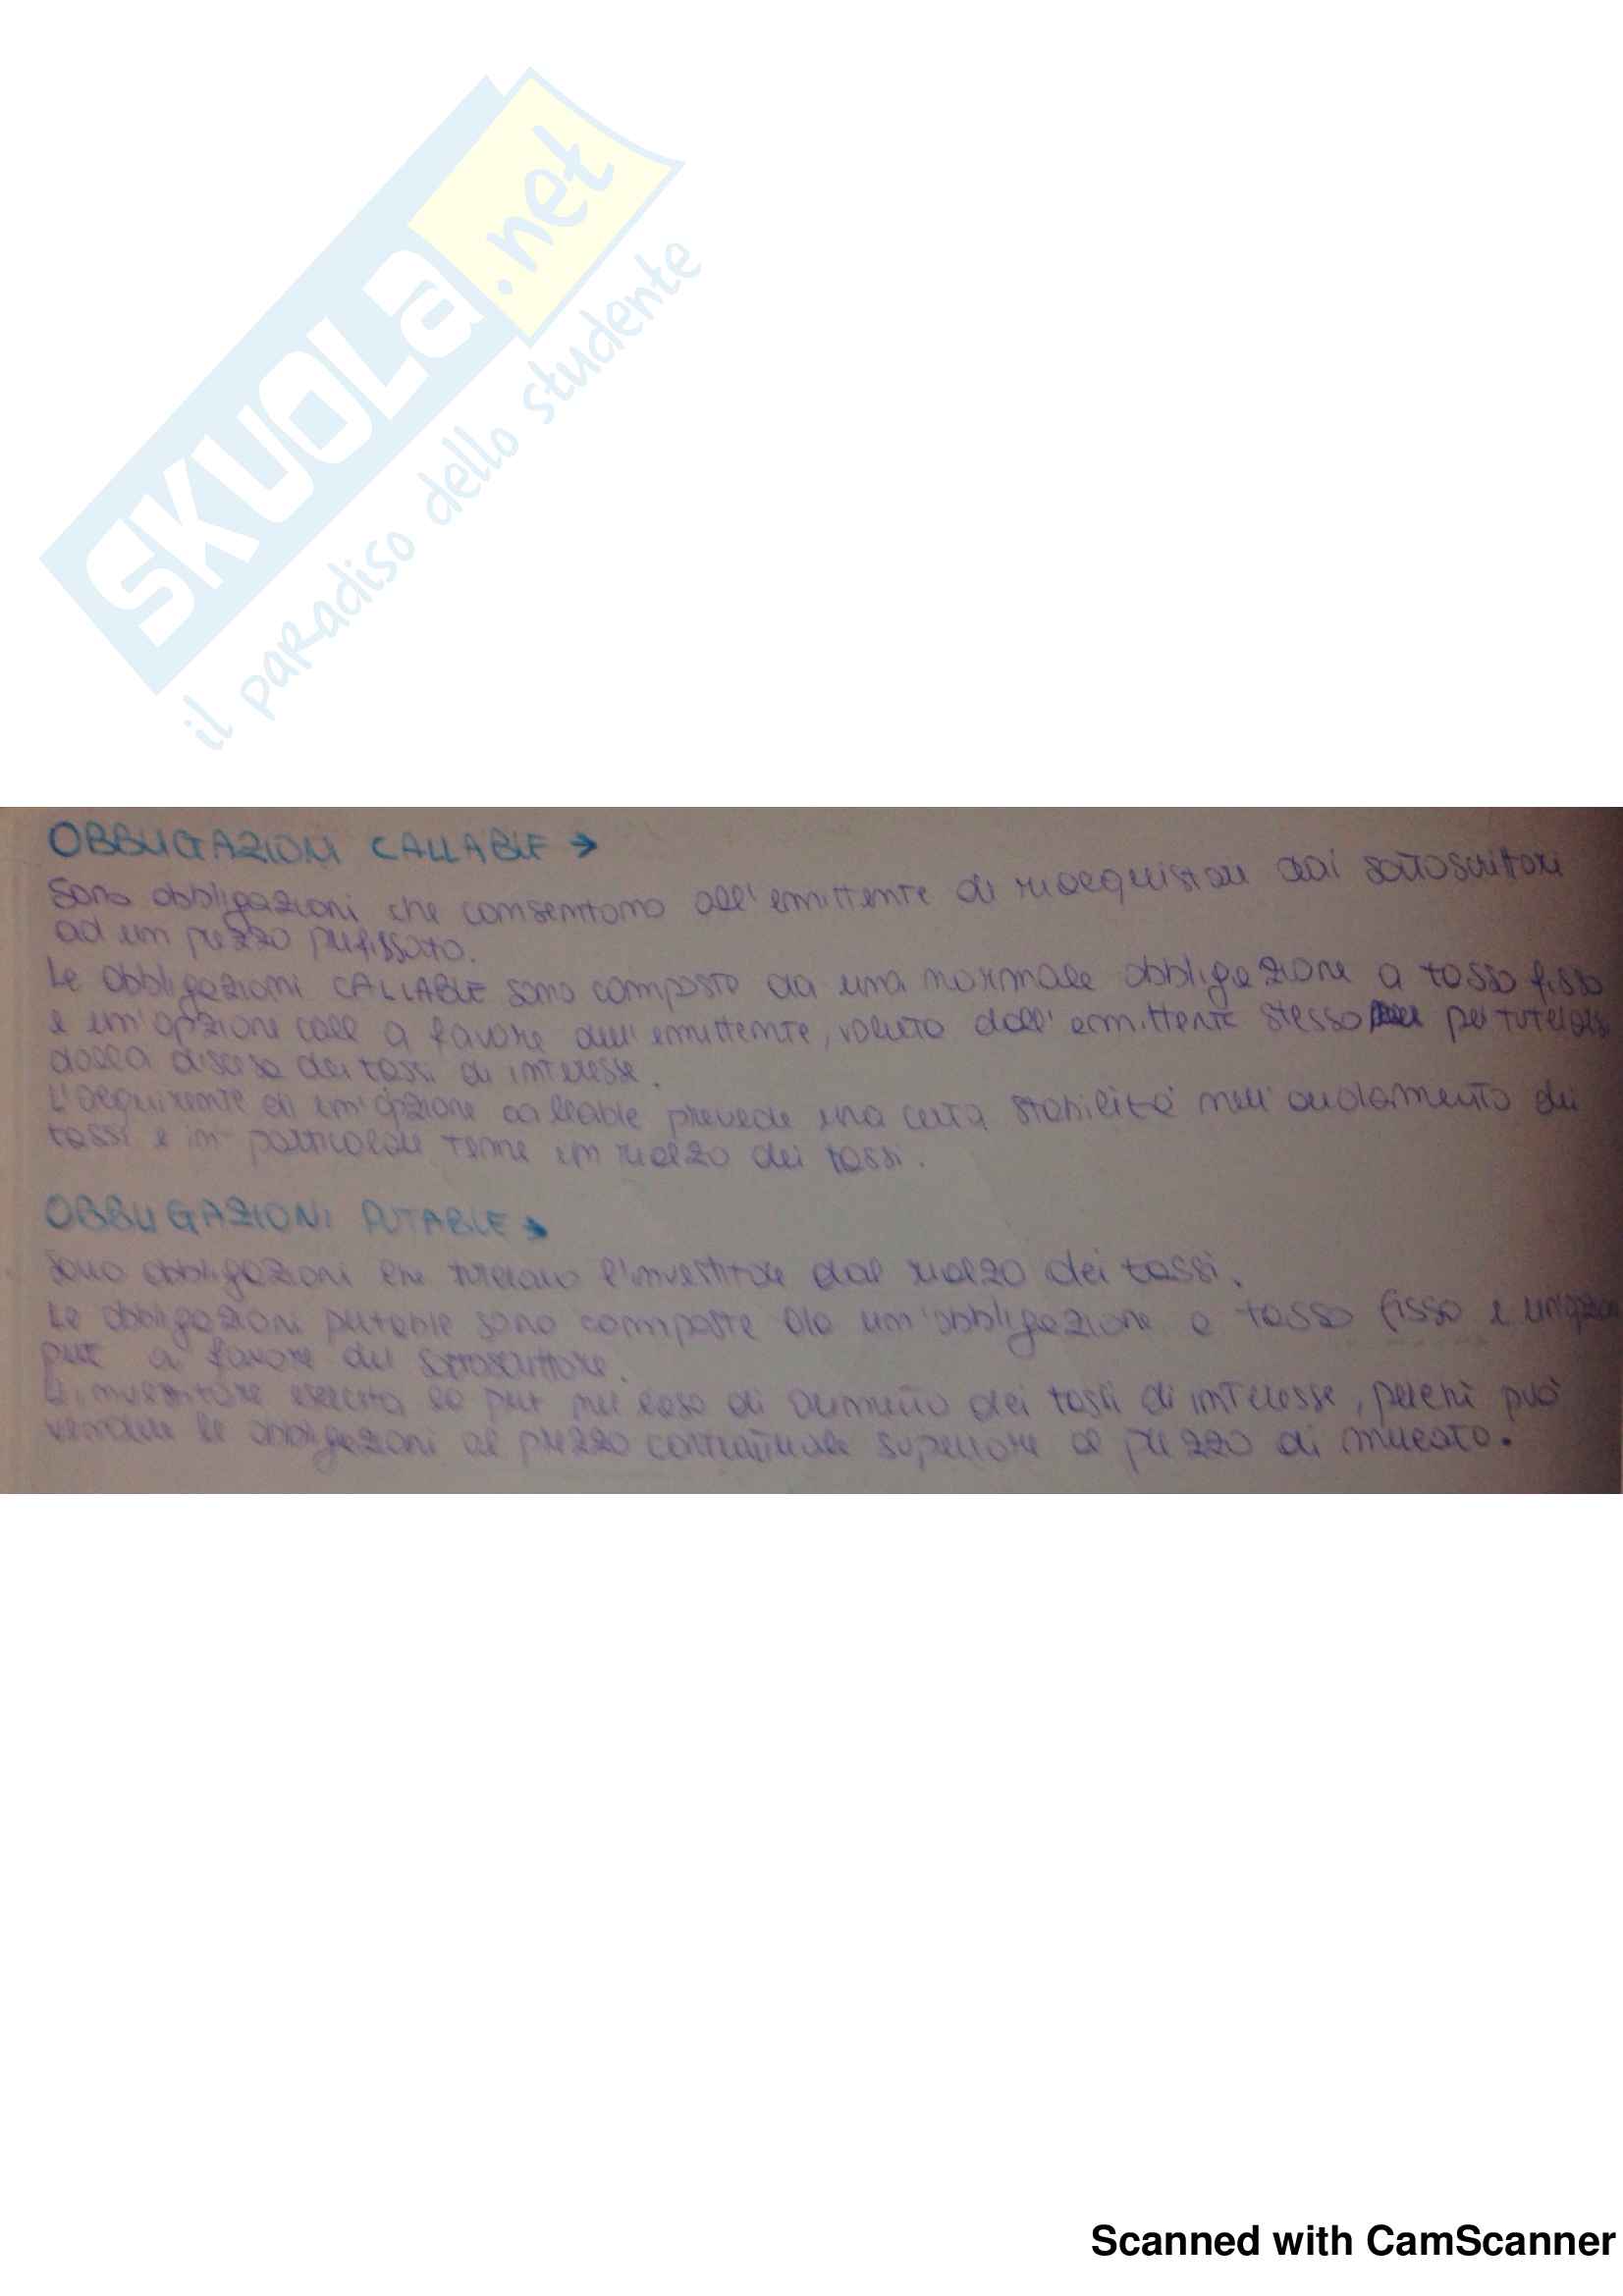 SKUOLa.net
il paradiso dello studente
OBBLIGAZIONI CALLABLE →
Sono obbligazioni che consentono all'emittente di riacquistare dai sottoscrittori
ad un prezzo prefissato.
Le obbligazioni CALLABLE sono composte da una normale obbligazione a tasso fisso
e un'opzione call a favore dell'emittente, voluta dall'emittente stesso per tutelarsi
dalla discesa dei tassi di interesse.
L'acquirente di un'opzione callable prevede una certa stabilità nell'andamento dei
tassi e in particolare teme un rialzo dei tassi.
OBBLIGAZIONI PUTABLE →
Sono obbligazioni che tutelano l'investitore dal rialzo dei tassi.
Le obbligazioni putable sono composte da un'obbligazione a tasso fisso e
put a favore del sottoscrittore.
L'investitore esercita la put nel caso di aumento dei tassi di interesse, perchè può
vendere le obbligazioni al prezzo contrattuale superiore al prezzo di mercato.
Scanned with CamScanner